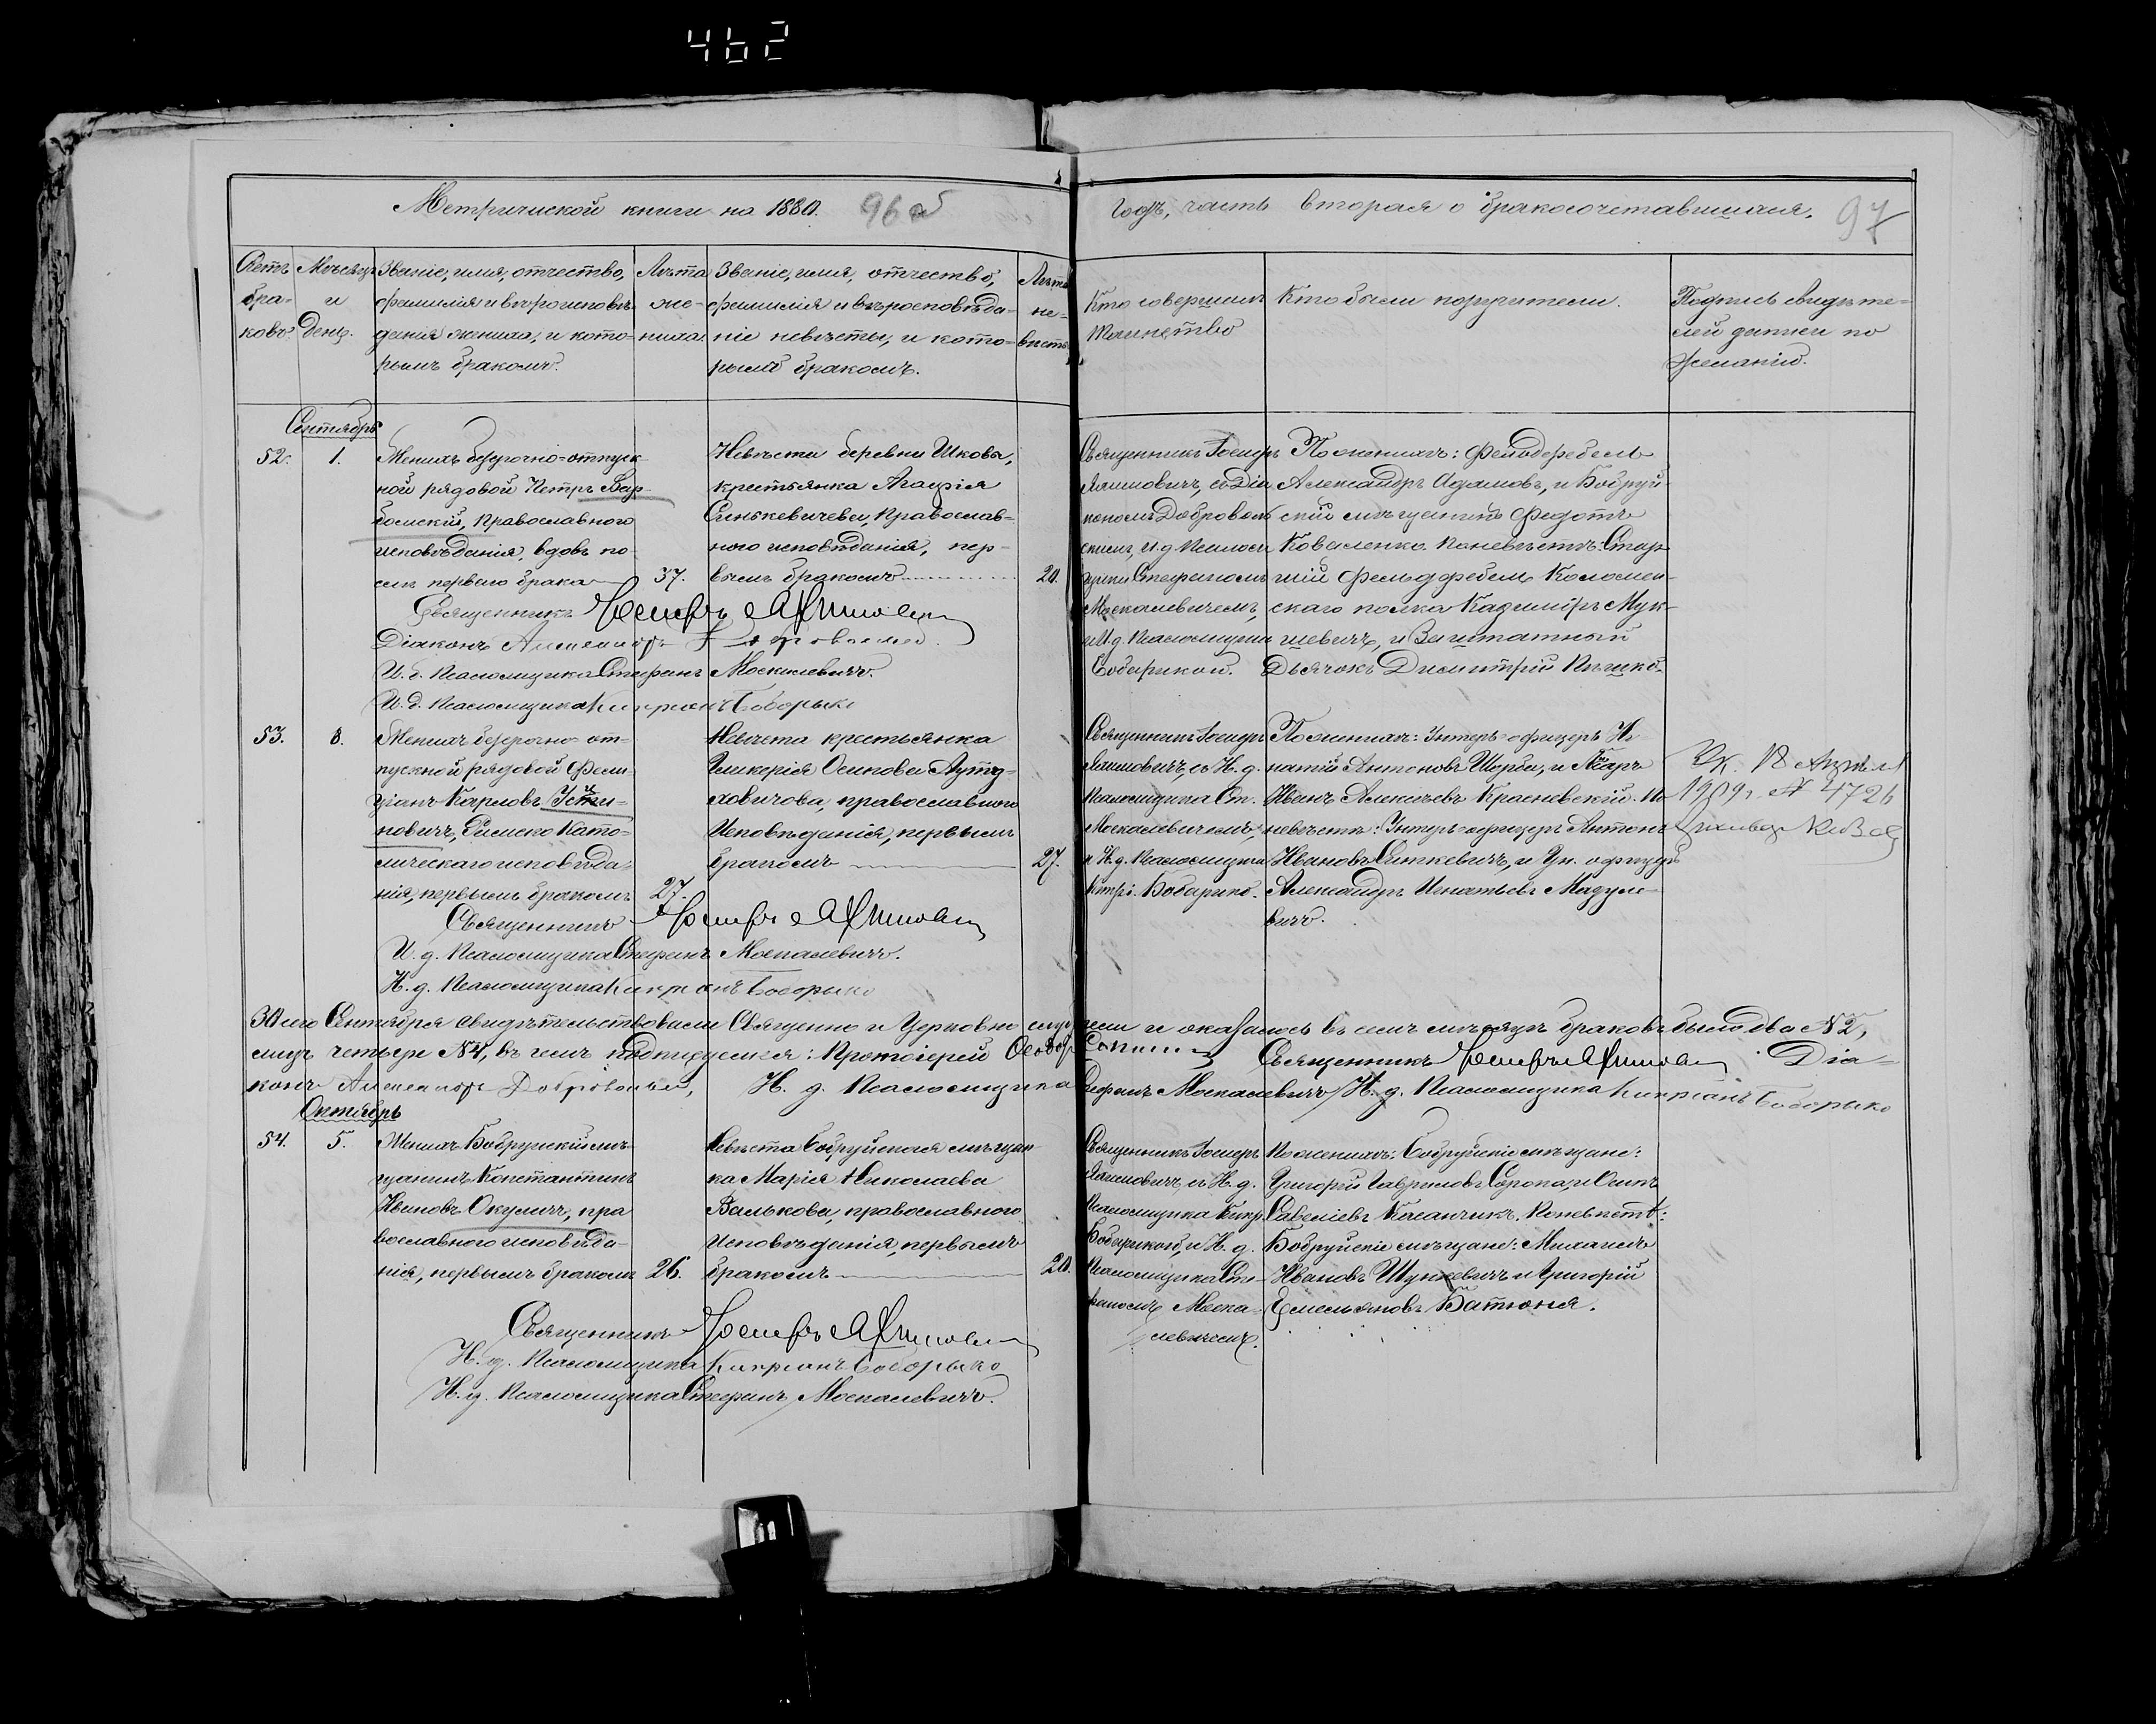 462
Метрической книги на 1880. 96 об
годъ, часть вторая о бракосочетавшихся. 97
Счетъ бра- ковъ.
Мѣсяцъ и день.
Званіе, имя, отчество,
фамилія и вѣроисповѣ-
даніе жениха, и кото-
рымъ бракомъ.
Лѣта же- ниха.
Званіе, имя, отчество,
фамилія и вѣроисповѣда-
ніе невѣсты, и кото-
рымъ бракомъ.
Лѣта не- вѣсты
Кто совершилъ
таинство
Кто были поручители.
Подпись свидѣте-
лей записи по
желанію.
Сентябрь
52. 1.
Женихъ безсрочно-отпуск-
ной рядовой Петръ
Православнаго
исповѣданія, вдовъ по-
слѣ перваго брака 37.
Невѣста деревни Шкова,
крестьянка Агафія
Синькевичева, Православ-
наго исповѣданія, пер-
вымъ бракомъ 20.
Священникъ Іосифъ
Якимовичъ, съ Діа
кономъ Доброволь
скимъ, И.д. Псалом
щика Стефаномъ
Москалевичемъ,
и И.д. Псаломщика
Бобарикой.
По женихѣ: Фельдфебель
Александръ Адамовъ, и Бобруй-
скій мѣщанинъ Федотъ
Коваленко. По невѣстѣ: Стар-
шій Фельдфебель Коломен-
скаго полка Казиміръ Мук-
шевичъ, и Заштатный
Дьячокъ Димитрій
Священникъ Іосифъ Якимовичъ
Діаконъ Александръ Добровольск
И.д. Псаломщика Стефанъ Москалевичъ.
И.д. Псаломщика Кипріанъ Боборыко
53. 8.
Женихъ безсрочно от-
пускной рядовой Фели-
ціанъ Карловъ Усти-
новичъ, Римско Като-
лическаго исповѣда-
нія, первымъ бракомъ 27.
Невѣста крестьянка
Гликерія Осипова
православнаго
Исповѣданія, первымъ
бракомъ 27.
Священникъ Іосифъ
Якимовичъ, съ И.д.
Псаломщика Ст.
Москалевичемъ,
и И.д. Псаломщика
Кипрі. Бобарико.
По женихѣ: Унтеръ-офицеръ Иг-
натій Антоновъ Щерба, и
Иванъ Алексѣевъ Красневскій. По
невѣстѣ: Унтеръ-офицеръ Антонъ
Ивановъ Синкевичъ, и Ун. офицеръ
Александръ Игнатьевъ Мадуле-
вичъ.
1909 г. № 4726
Священникъ Іосифъ Якимовичъ
И.д. Псаломщика Стефанъ Москалевичъ.
И.д. Псаломщика Кипріанъ Боборыко
30го Сентября свидѣтельствовали Священно и Церковно служители и оказалось въ семъ мѣсяцѣ браковъ было два №2,
лицъ четыре №4, въ чемъ подписуемся: Протоіерей Священникъ Іосифъ Якимовичъ Діа-
конъ Александръ Добровольскій, И.д. Псаломщика Стефанъ Москалевичъ И.д. Псаломщика Кипріанъ Боборыко
Октябрь
54. 5.
Женихъ Бобруйскій мѣ-
щанинъ Константинъ
Ивановъ Окуличъ, пра
вославнаго исповѣда-
нія, первымъ бракомъ 26.
Невѣста Бобруйская мѣщан-
ка Марія Николаева
Валькова, православнаго
Исповѣданія, первымъ
бракомъ 20.
Священникъ Іосифъ
Якимовичъ, съ И.д.
Псаломщика Кипр.
Бобариқой, и И.д.
Псаломщика Сте-
фаномъ Моска-
левичемъ.
По женихѣ: Бобруйскіе мѣщане:
Григорій Гавриловъ Сорока, и Осипъ
Савеліевъ Касанчикъ. По невѣстѣ:
Бобруйскіе мѣщане: Михаилъ
Ивановъ Шункевичъ и Григорій
Емельяновъ Батюня.
Священникъ Іосифъ Якимовичъ
И.д. Псаломщика Кипріанъ Боборыко
И.д. Псаломщика Стефанъ Москалевичъ.